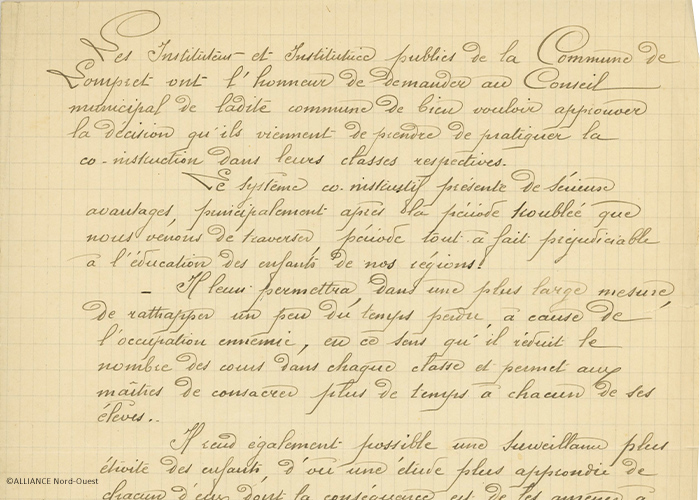 Les Instituteurs et Institutrice publics de la Commune de
Lompret ont l'honneur de demander au Conseil
municipal de ladite commune de bien vouloir approuver
la décision qu'ils viennent de prendre de pratiquer la
co-instruction dans leurs classes respectives.
Le système co-instructif présente de sérieux
avantages, principalement après la période troublée que
nous venons de traverser, période tout à fait préjudiciable
à l'éducation des enfants de nos régions.
- Il leur permettra dans une plus large mesure,
de rattrapper un peu du temps perdu à cause de
l'occupation ennemie, en ce sens qu'il réduit le
nombre des cours dans chaque classe et permet aux
maîtres de consacrer plus de temps à chacun de ses
élèves..
Il rend également possible une surveillance plus
étroite des enfants, d'où une étude plus approndie de
chacun d'eux dont la conséquence est de les amener à
©ALLIANCE Nord-Ouest